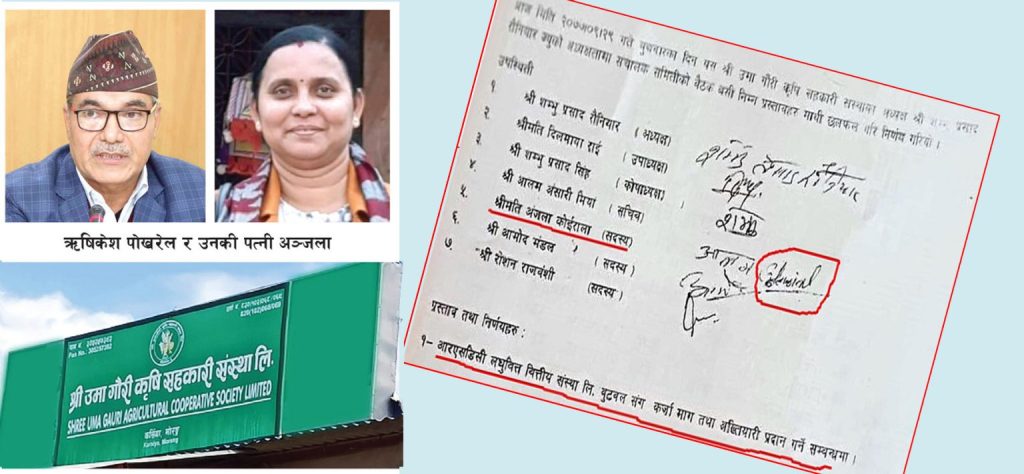 ऋषिकेश पोखरेल र उनकी पत्नी अञ्जला
श्री उमा गौरी कृषि सहकारी संस्था लि.
SHREE UMA GAURI AGRICULTURAL COOPERATIVE SOCIETY LIMITED
कर्सिया, मोरङ्ग
Karsiya, Morang
Pan No.: 305257382
आज मिति २०७५।०९।२५ गते बुधवारका दिन यस श्री उमा गौरी कृषि सहकारी संस्थाका अध्यक्ष श्री शम्भु प्रसाद
रौनियार ज्यूको अध्यक्षतामा संचालक समितीको बैठक बसी निम्न प्रस्तावहर माथी छलफल गरि निर्णय गरियो ।
उपस्थिती
१ श्री शम्भु प्रसाद रौनियार ( अध्यक्ष)
२ श्रीमति दिलमाया राई ( उपाध्यक्ष)
३ श्री शम्भु प्रसाद सिंह ( कोषाध्यक्ष)
४ श्री आलम अंसारी मिया ( सचिव)
५. श्रीमति अंजला कोईराला (सदस्य)
६. श्री आमोद मंडल (सदस्य)
७ श्री रोशन राजवंशी (सदस्य)
प्रस्ताव तथा निर्णयहरु :
१– आरएसडिसी लघुवित्त वित्तीय संस्था लि. बुटवल संग कर्जा माग तथा अख्तियारी प्रदान गर्ने सम्वन्धमा ।